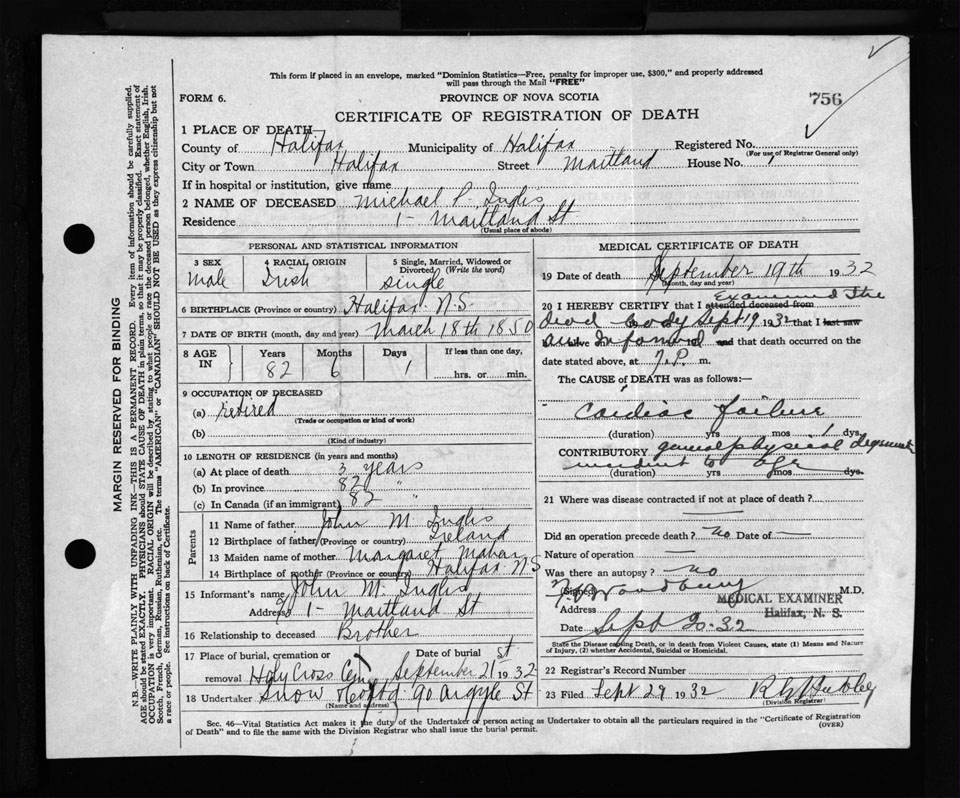 This form if placed in an envelope, marked "Dominion Statistics—Free, penalty for improper use, $300," and properly addressed
will pass through the Mail "FREE"
FORM 6.
PROVINCE OF NOVA SCOTIA
756
CERTIFICATE OF REGISTRATION OF DEATH
1 PLACE OF DEATH—
County of Halifax Municipality of Halifax Registered No.
(For use of Registrar General only)
City or Town Halifax Street Maitland House No. 1
If in hospital or institution, give name
2 NAME OF DECEASED Michael P. Inglis
Residence 1- Maitland St
(Usual place of abode)
PERSONAL AND STATISTICAL INFORMATION
3 SEX
male
4 RACIAL ORIGIN
Irish
5 Single, Married, Widowed or
Divorced (Write the word)
single
6 BIRTHPLACE (Province or country) Halifax N.S
7 DATE OF BIRTH (month, day and year) March 18th 1850
8 AGE
IN
Years
82
Months
6
Days
1
If less than one day,
hrs. or min.
9 OCCUPATION OF DECEASED
(a) Retired
(Trade or occupation or kind of work)
(b)
(Kind of industry)
10 LENGTH OF RESIDENCE (in years and months)
(a) At place of death 3 years
(b) In province 82 "
(c) In Canada (if an immigrant) 82 "
Parents
11 Name of father John M. Inglis
12 Birthplace of father Ireland
13 Maiden name of mother Margaret Mahar
14 Birthplace of mother (Province or country) Halifax N S
15 Informant's name John M. Inglis
Address % 1- Maitland St
16 Relationship to deceased Brother
17 Place of burial, cremation or
Date of burial
removal Holy Cross Cem September 21st 1932
18 Undertaker Snow & Co Ltd 90 Argyle St
(Name and address)
MEDICAL CERTIFICATE OF DEATH
19 Date of death September 19th 1932
(Month, day and year)
20 I HEREBY CERTIFY that I attended deceased from Examined the
dead body Sept 19 1932 that I last saw
am Informed and that death occurred on the
date stated above, at 7.P. m.
The CAUSE of DEATH was as follows:—
Cardiac failure
(duration) yrs mos 1 dys
CONTRIBUTORY general physical
incident to age
(duration) yrs mos dys.
21 Where was disease contracted if not at place of death?
Did an operation precede death? no Date of —
Nature of operation —
Was there an autopsy? no
(Signed) M.D.
MEDICAL EXAMINER
Address
Halifax, N. S.
Date Sept 20-32
State the Disease causing Death, or in death from Violent Causes, state (1) Means and Nature
of Injury, (2) whether Accidental, Suicidal or Homicidal.
22 Registrar's Record Number
23 Filed Sept 29 1932
(Division Registrar)
Sec. 46—Vital Statistics Act makes it the duty of the Undertaker or person acting as Undertaker to obtain all the particulars required in the "Certificate of Registration
of Death" and to file the same with the Division Registrar who shall issue the burial permit.
(OVER)
MARGIN RESERVED FOR BINDING
N.B.—WRITE PLAINLY WITH UNFADING INK—THIS IS A PERMANENT RECORD. Every item of information should be carefully supplied.
AGE should be stated EXACTLY. PHYSICIANS should STATE CAUSE OF DEATH in plain terms, so that it may be properly classified. Exact statement of
OCCUPATION is very important. RACIAL ORIGIN will be described by stating to what people or race the deceased person belonged, whether English, Irish,
Scotch, French, German, Russian, Ruthenian, etc. The terms "AMERICAN" or "CANADIAN" SHOULD NOT BE USED as they express citizenship but not
a race or people. See instructions on back of Certificate.